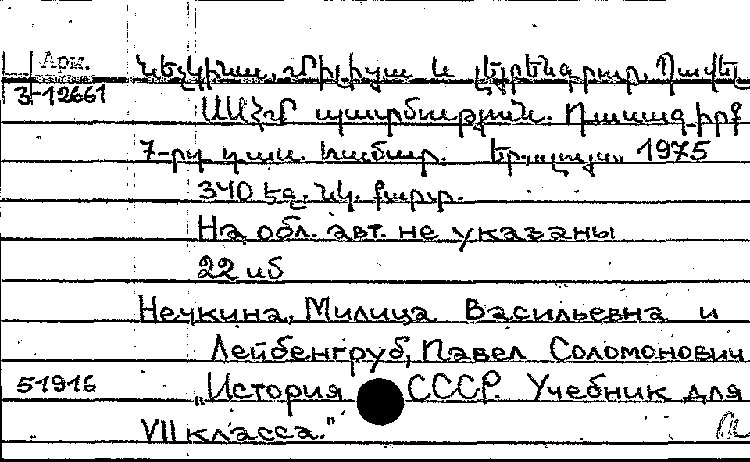 Арм.
Նեչկինա, Միլիցա և Լեյբենգրուբ, Պավել
3-12661
ՍՍՀՄ պատմություն. Դասագիրք
7-րդ դաս. համար. Եր., 1975
340 էջ. նկ. քարտ.
На обл. авт. не указаны
22 иб
Нечкина, Милица Васильевна и
Лейбенгруб, Павел Соломонович
51916 „История СССР. Учебник для
VII класса."